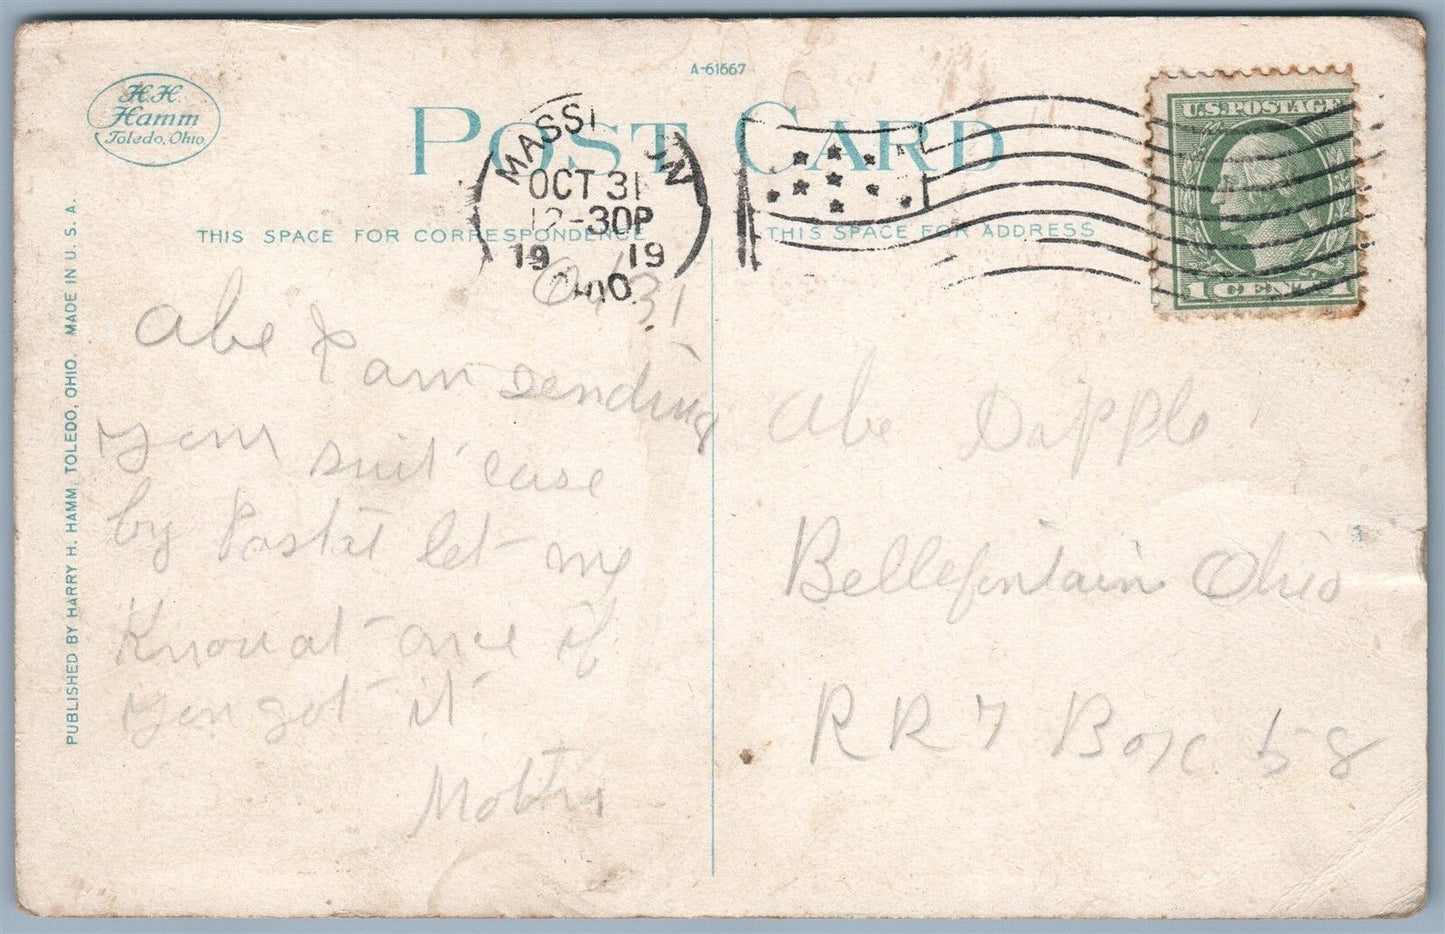 H.H.
Hamm
Toledo, Ohio
A-61667
POST CARD
MASSI ON
OCT 31
12-30P
19 19
OHIO
U.S. POSTAGE
1 CENT 1
THIS SPACE FOR CORRESPONDENCE
THIS SPACE FOR ADDRESS
PUBLISHED BY HARRY H. HAMM, TOLEDO, OHIO. MADE IN U. S. A.
Oct 31
Abe I am sending
your suit case
by Postat let me
Know at once if
you got it
Abe Dipple
Bellefontain Ohio
RR 7 Box 58